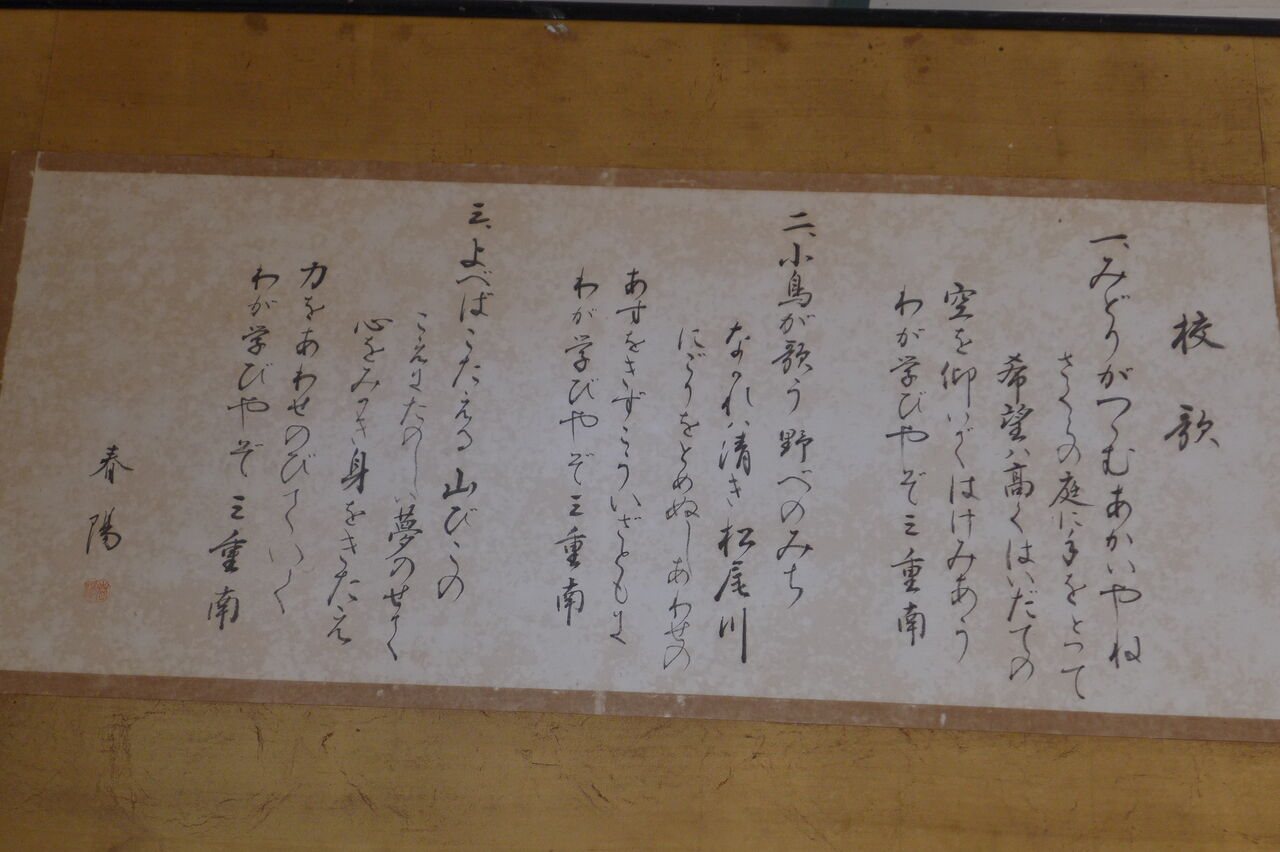 校歌
一、みどりがつゝむあかいやね
さくらの庭に手をとって
希望は高くはいだての
空を仰いでくはげみあう
わが学びやぞ三重南
二、小鳥が歌う野べのみち
ながれは清き松尾川
にごりをとめぬしあわせの
あすをきずこういざともに
わが学びやぞ三重南
三、よべばこたえる山びこの
こえもたのしい夢のせて
心をみがき身をきたえ
力をあわせのびていく
わが学びやぞ三重南
春陽